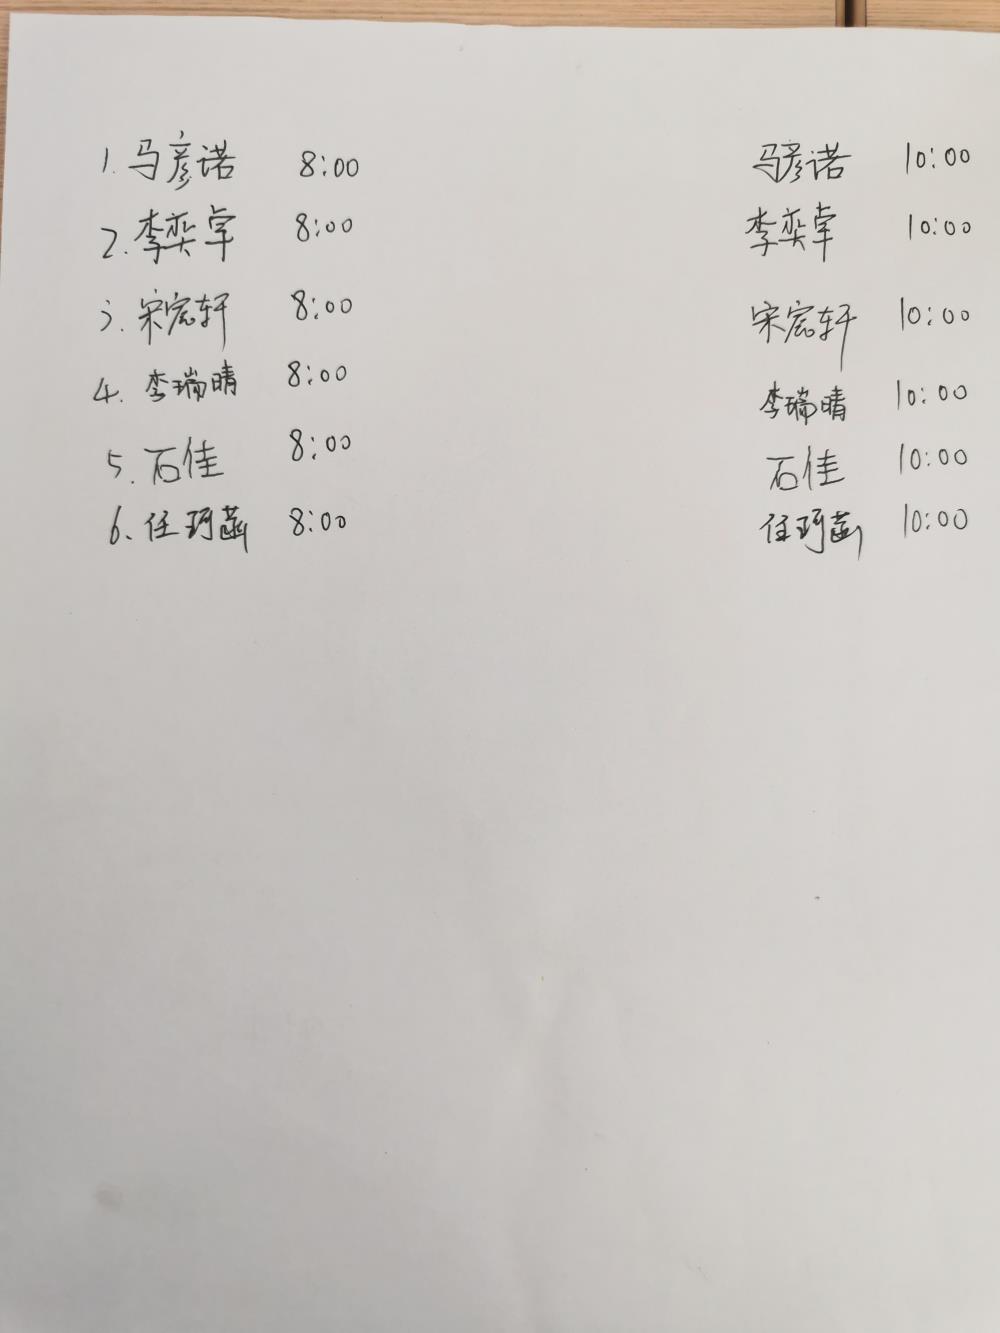 1. 马彦诺 8:00 马彦诺 10:00
2. 李奕卓 8:00 李奕卓 10:00
3. 宋宏轩 8:00 宋宏轩 10:00
4. 李瑞晴 8:00 李瑞晴 10:00
5. 石佳 8:00 石佳 10:00
6. 任珂菡 8:00 任珂菡 10:00